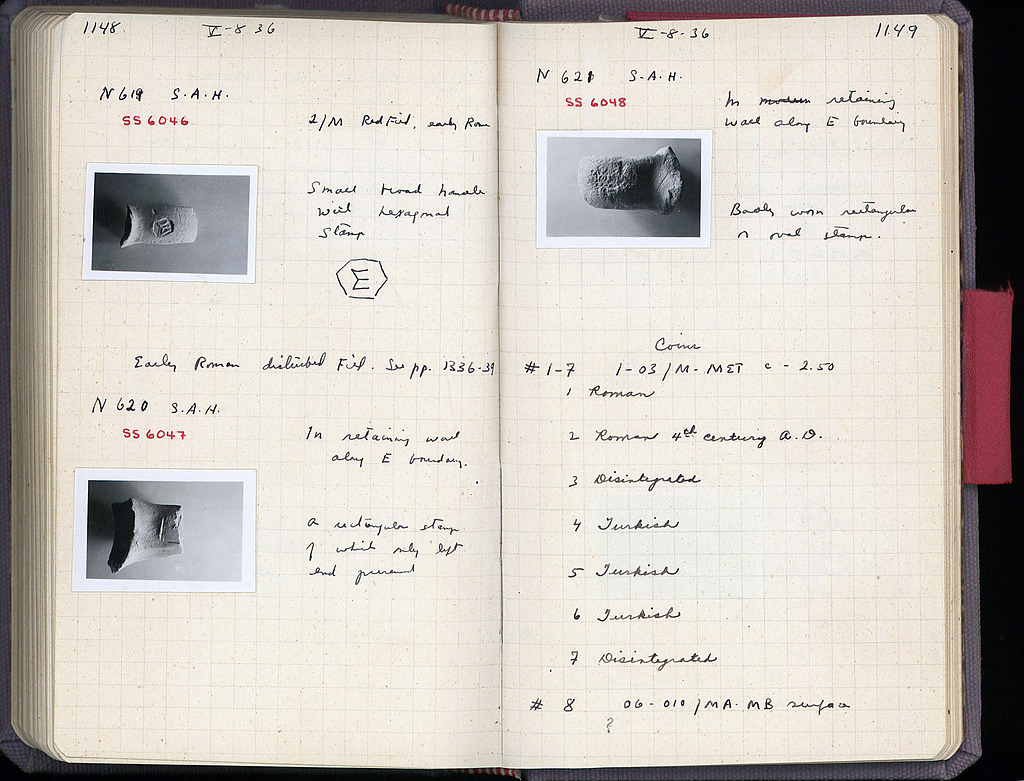 1148 V-8-36
N 619 S.A.H.
SS 6046
2/M Red Fill, early Rom
Small Hoad handle
with hexagonal
stamp
Σ
Early Roman disturbed Fill. See pp. 1336-39
N 620 S.A.H.
SS 6047
In retaining wall
along E boundary.
A rectangular stamp
of which only left
end preserved
V-8-36 1149
N 621 S.A.H.
SS 6048
In modern retaining
wall along E boundary
Badly worn rectangular
or oval stamp.
Coins
# 1-7 1-03/M-MET c - 2.50
1 Roman
2 Roman 4th century A.D.
3 Disintegrated
4 Turkish
5 Turkish
6 Turkish
7 Disintegrated
# 8 06-010/MA-MB surface
?